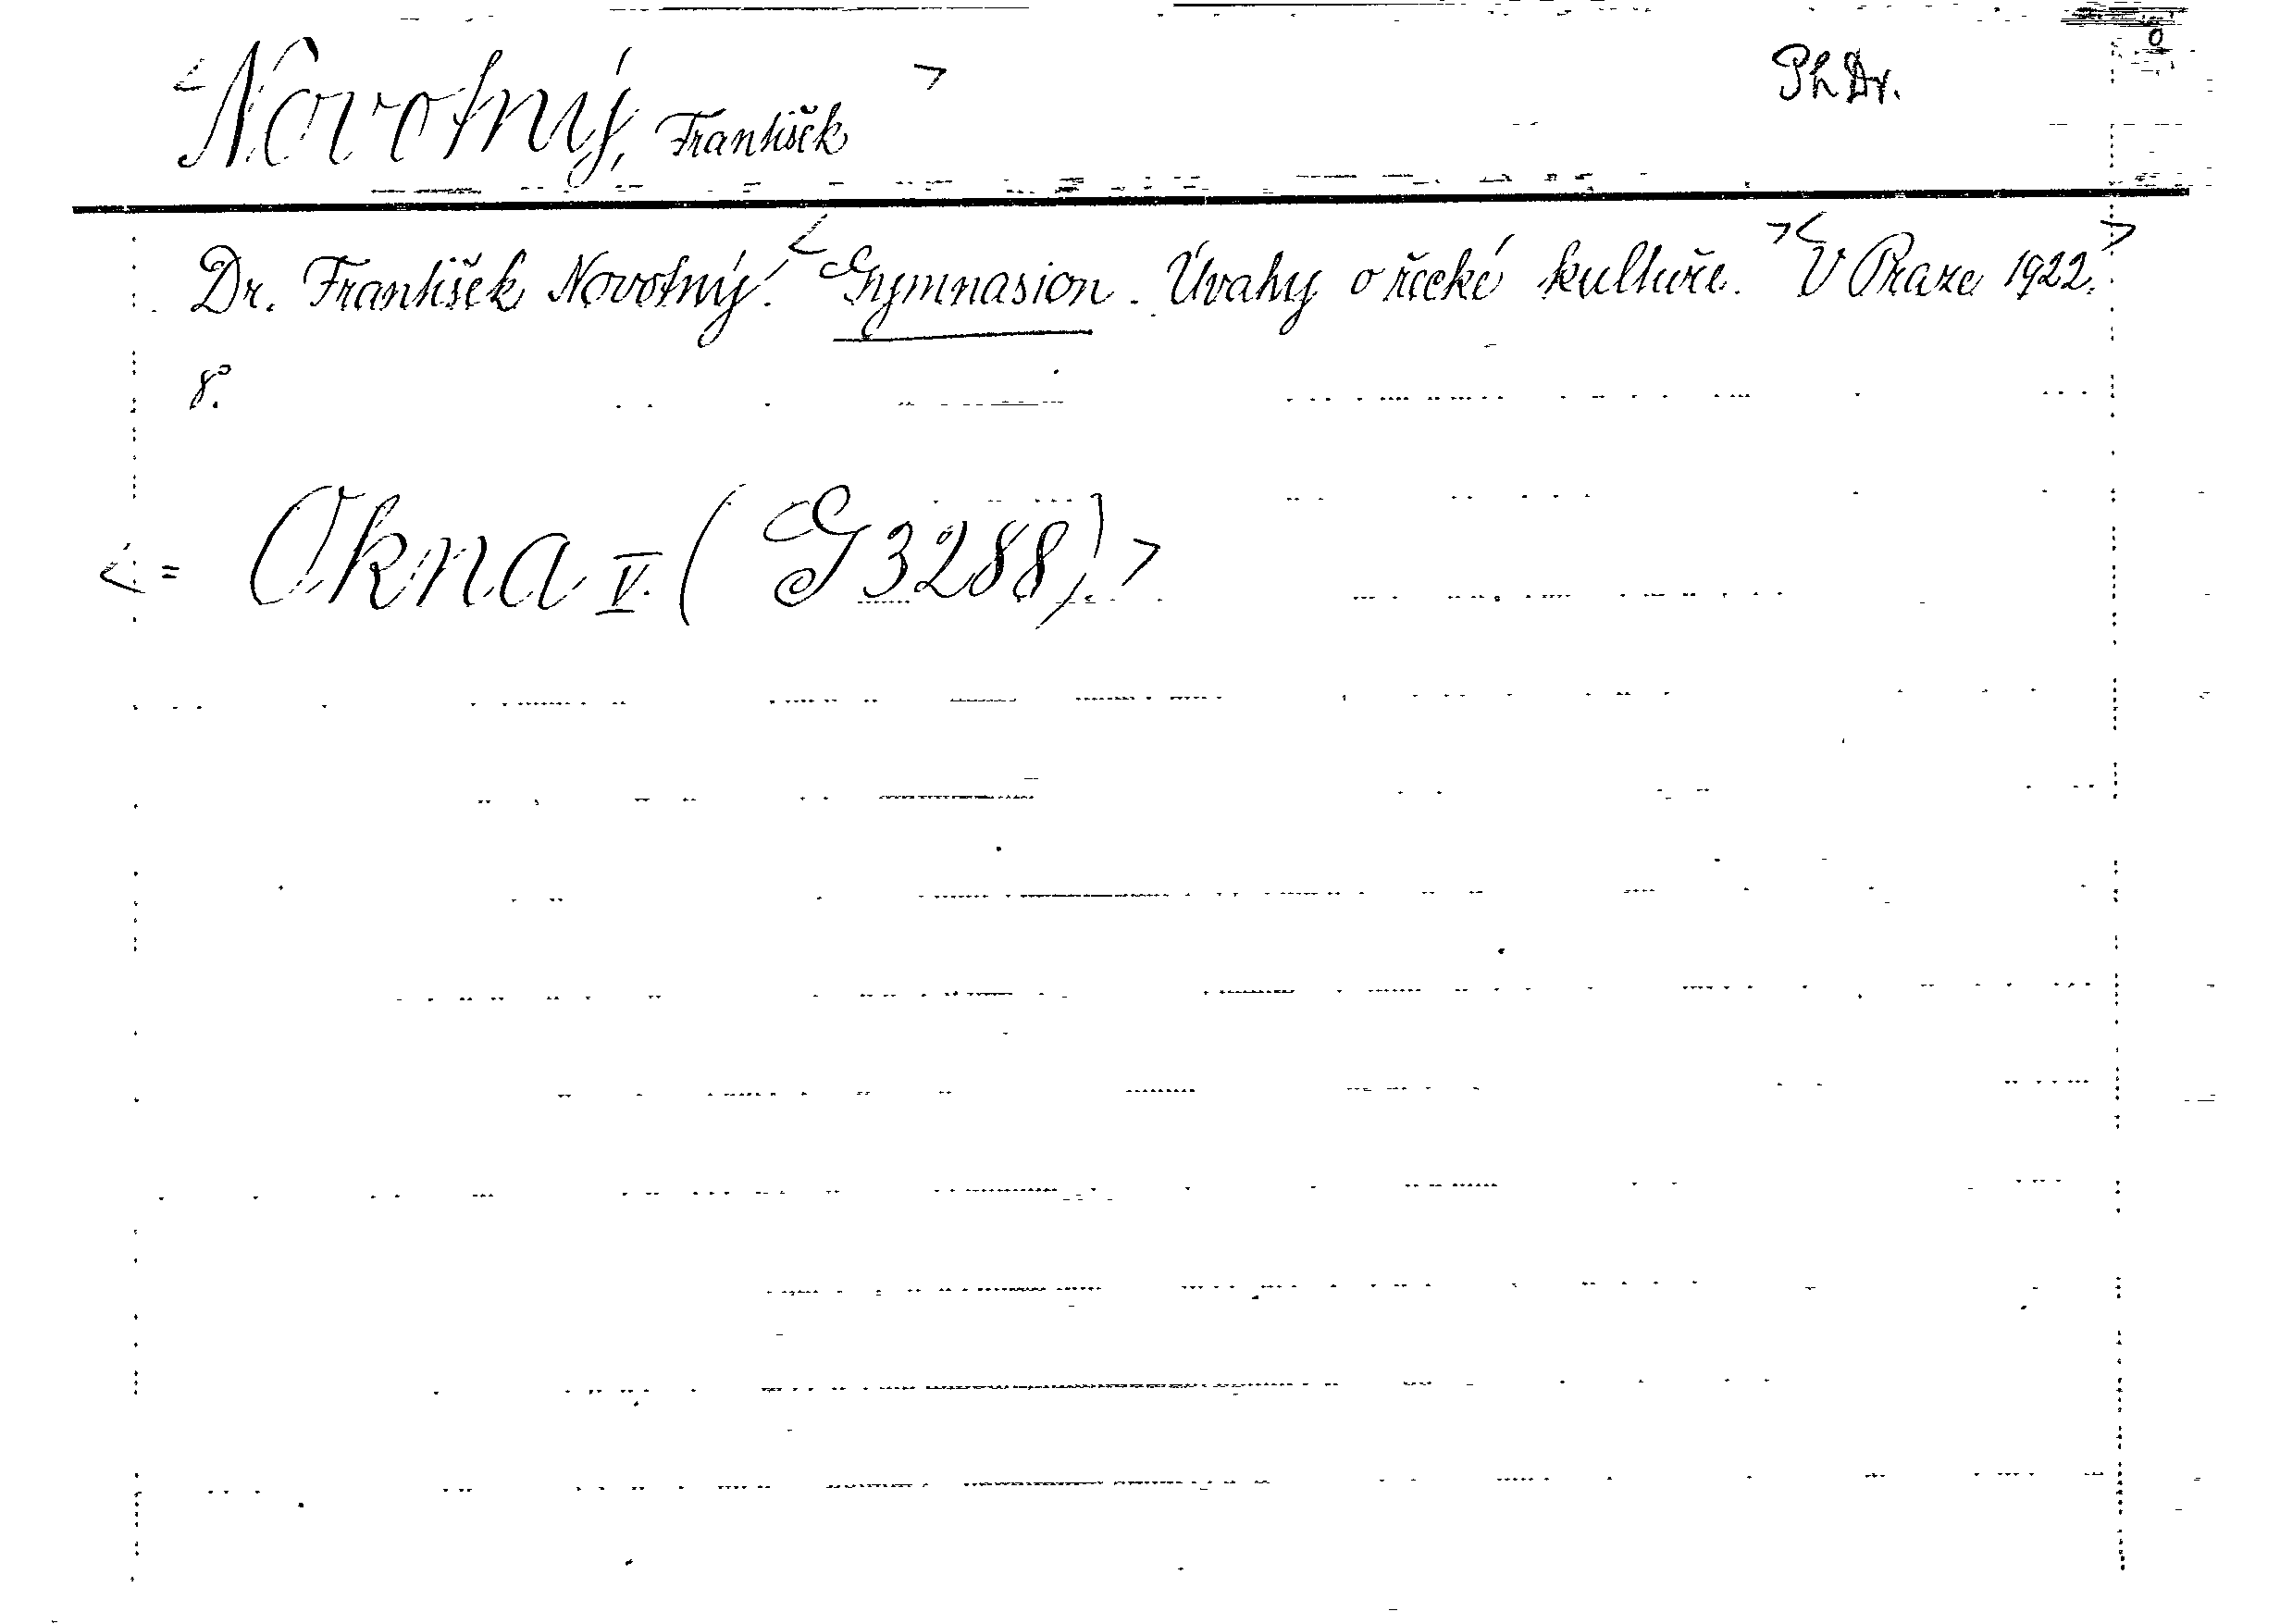 <Novotný, František> PhDr.
Dr. František Novotný: <Gymnasion. Úvahy o řecké kultuře.> <V Praze 1922.>
8°.
<= Okna V. (G 3288).>